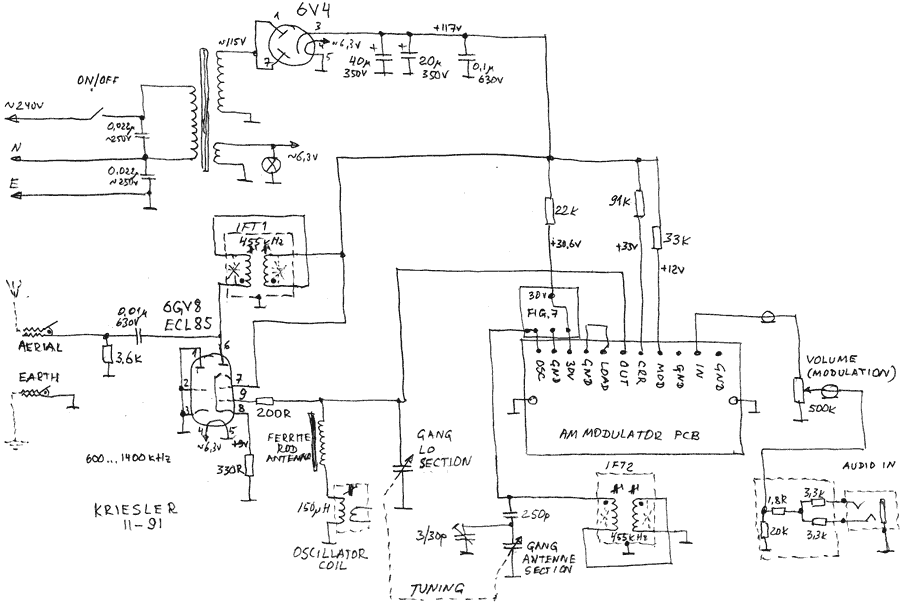 6V4
1
3
+117V
~6,3V
4
5
7
~115V
40µ
350V
20µ
350V
0,1µ
630V
ON/OFF
~240V
0,022µ
~250V
N
0,022µ
~250V
E
~6,3V
IFT1
455kHz
22K
+30,6V
91K
+35V
33K
+12V
30V
FIG.7
0,01µ
630V
6GV8
ECL85
AERIAL
3,6K
EARTH
1
6
7
2
9
3
8
4
5
~6,3V
+9V
200R
330R
OSC
GND
30V
GND
LOAD
OUT
CRR
MOD
GND
IN
GND
AM MODULATOR PCB
VOLUME
(MODULATION)
500K
FERRITE
ROD
ANTENNA
GANG
LO
SECTION
600...1400KHz
KRIESLER
11-91
150µH
OSCILLATOR
COIL
IFT2
455KHz
250p
3/30p
GANG
ANTENNE
SECTION
TUNING
AUDIO IN
1,8K
3,3K
20K
3,3K